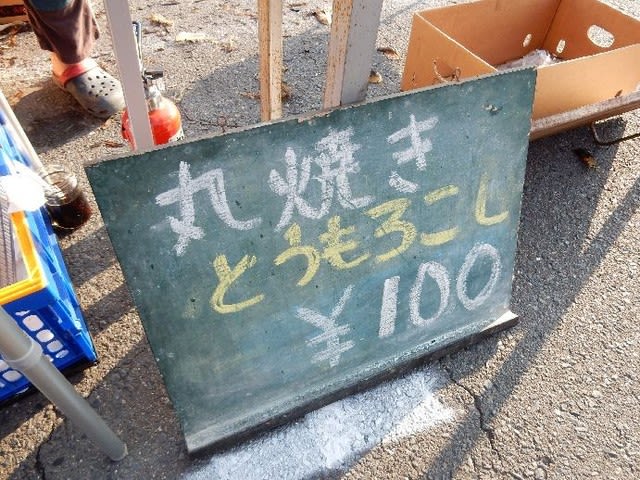 丸焼き
とうもろこし
¥100